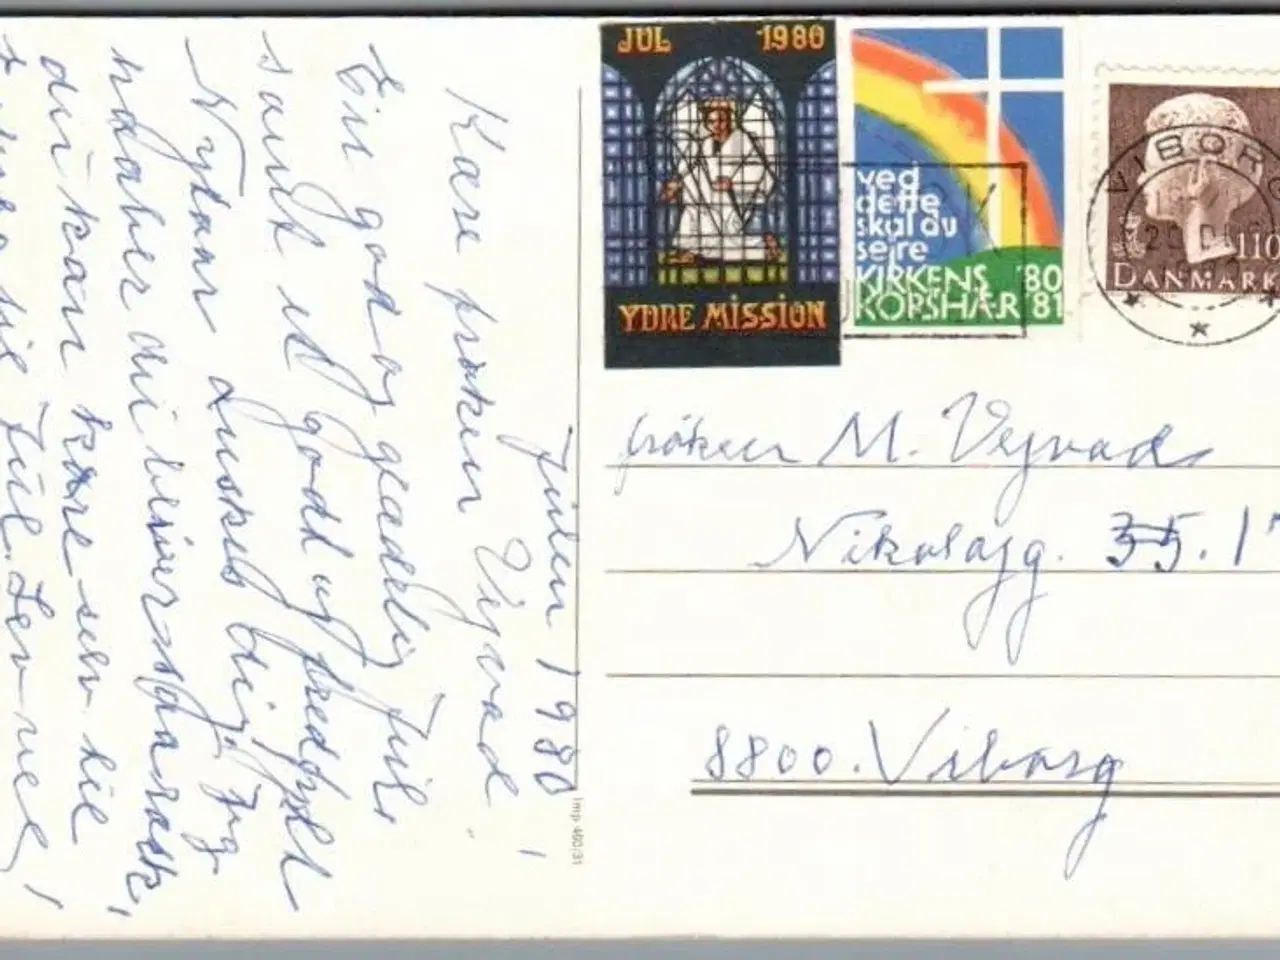 JUL 1980
YDRE MISSION
ved
dette
skal du
sejre
KIRKENS '80
KORSHÆR '81
VIBORG
110
DANMARK
Julen 1980
Kære frøken Vejvad!
En god og glædelig Jul
samt et godt og fredfyldt
Nytaar ønskes dig. Jeg
du kan komme selv til
frøken M. Vejvad
Nikolajg. 35. 1
8800. Viborg
Imp 490/31